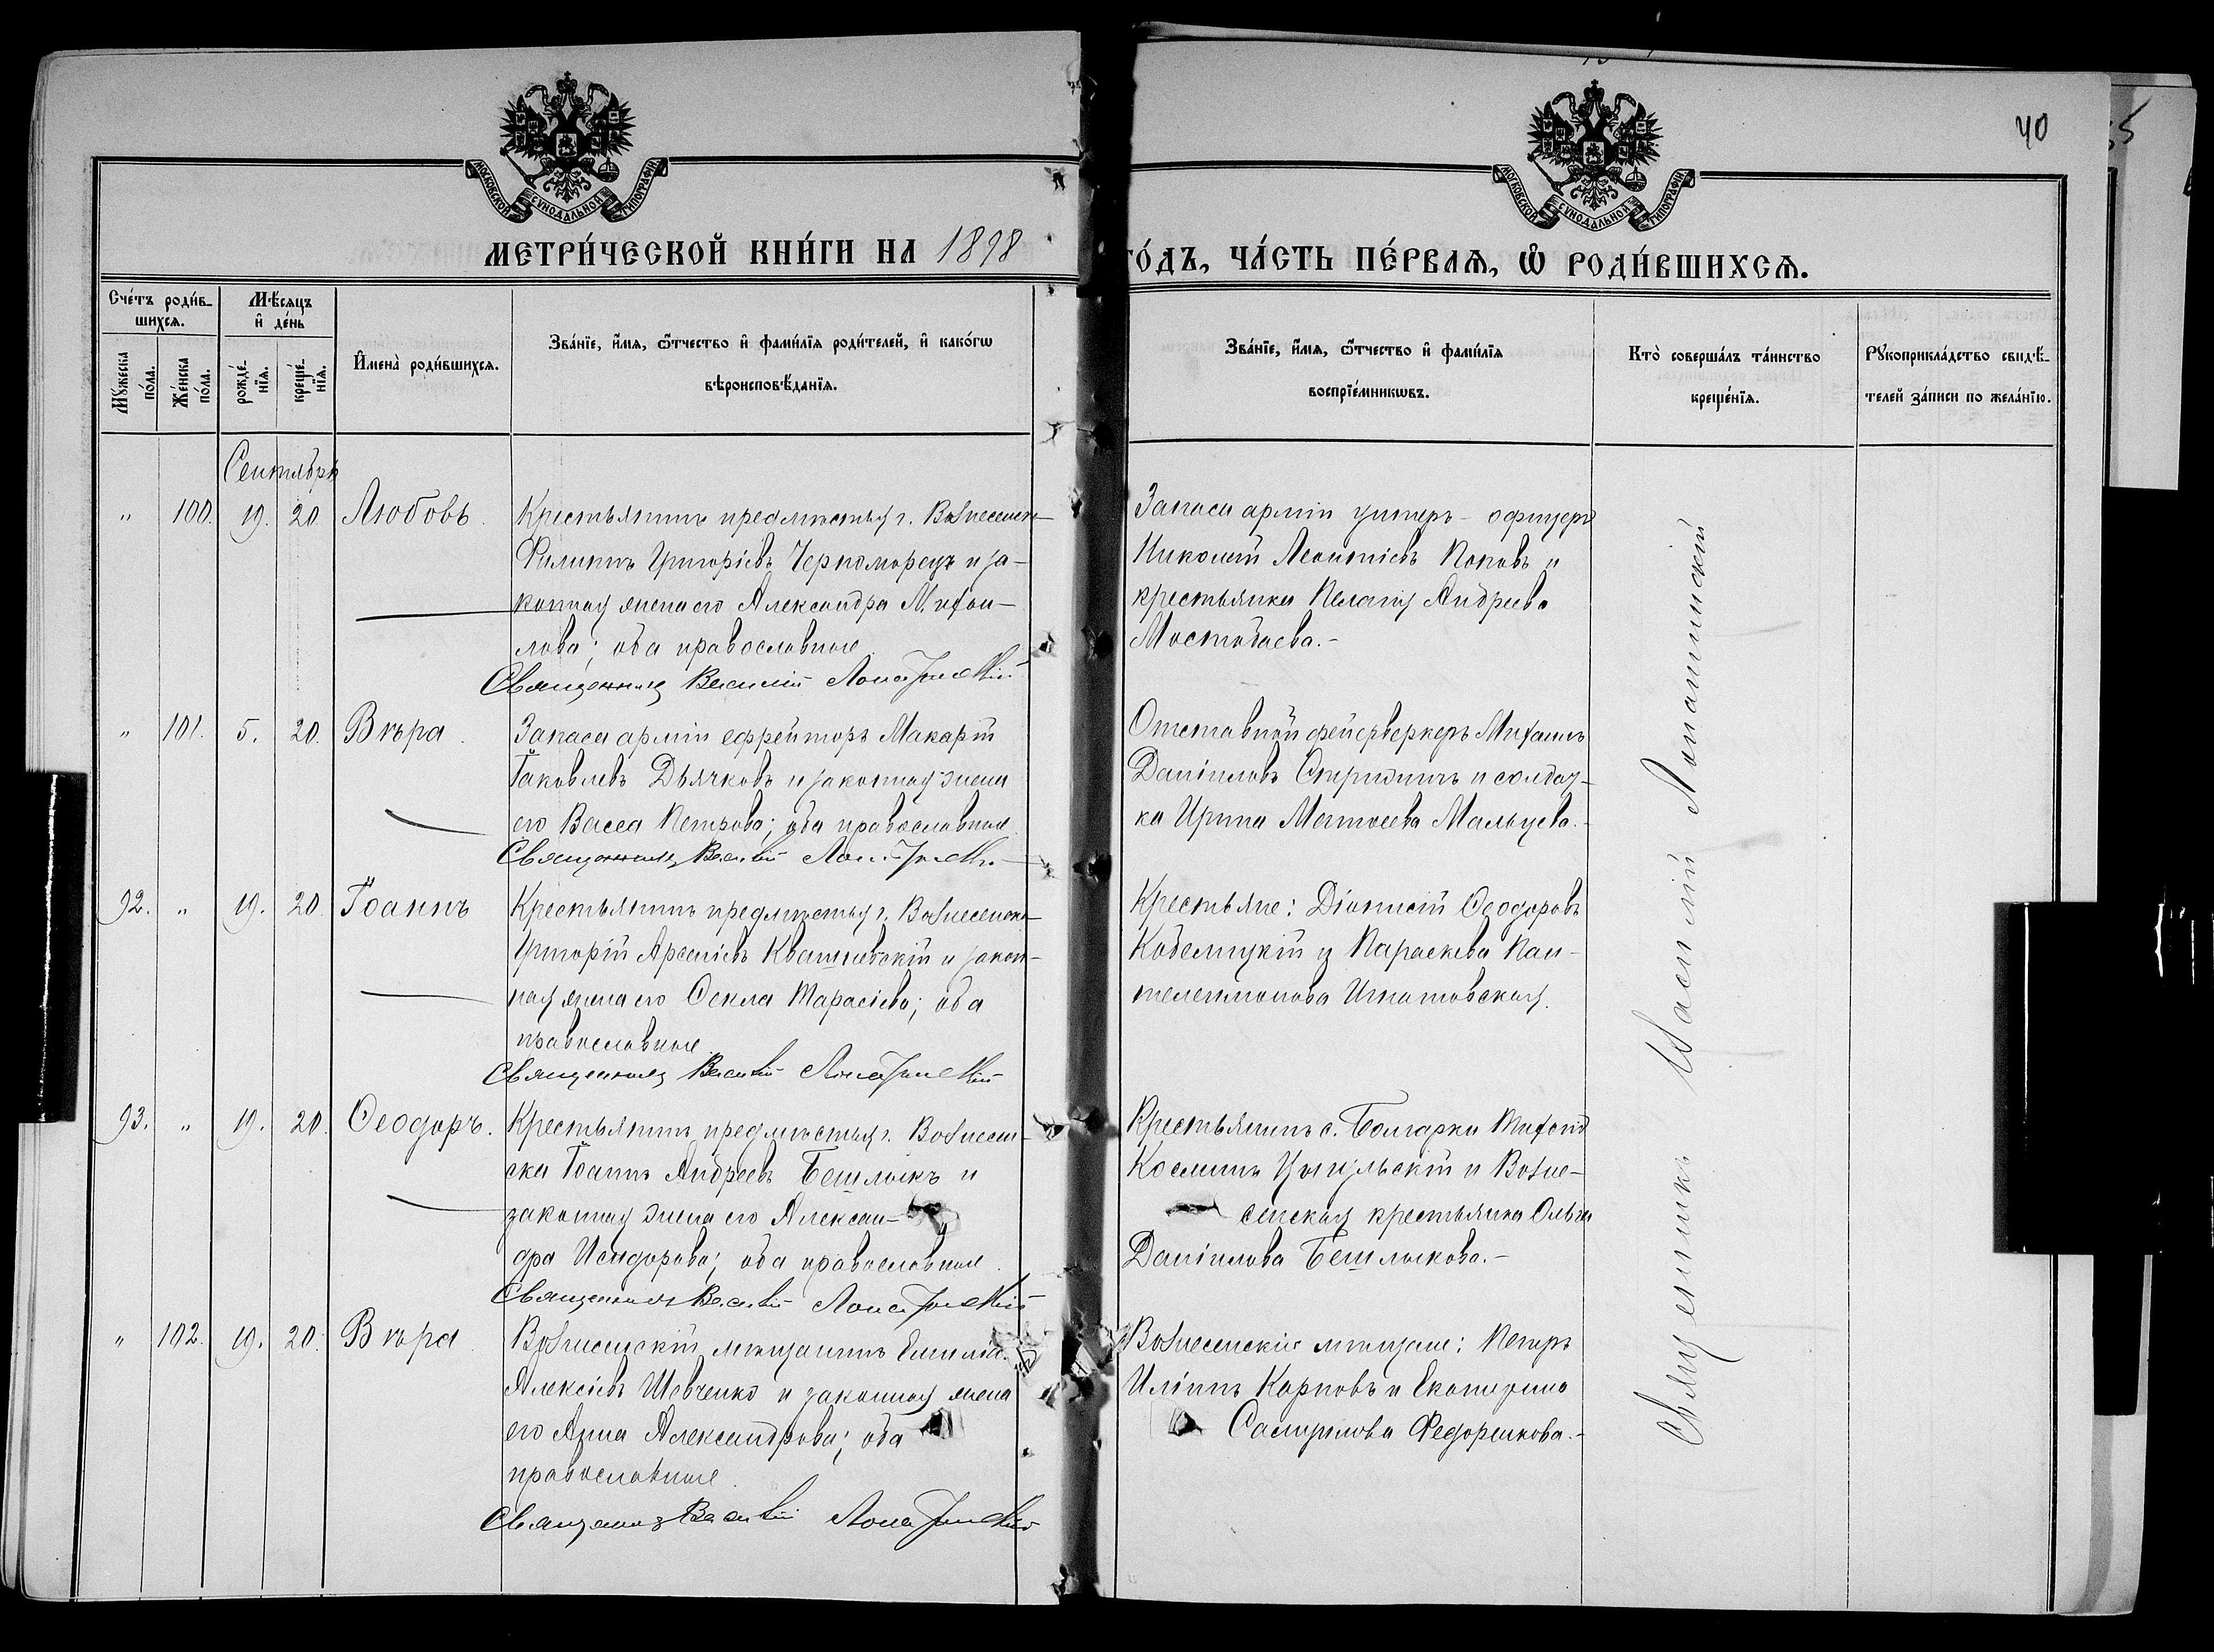 40
МОСКОВСКОЙ СѴНОДАЛЬНОЙ ТИПОГРАФІИ
МОСКОВСКОЙ СѴНОДАЛЬНОЙ ТИПОГРАФІИ
МЕТРИ́ЧЕСКОЙ КНИ́ГИ НА 1898
ГО́ДЪ, ЧА́СТЬ ПЕ́РВАѦ, Ѽ РОДИ́ВШИХСѦ.
Сче́тъ роди́в-
шихсѧ.
Мꙋ́жеска
по́ла.
Же́нска
по́ла.
Мѣ́сѧцъ
и҆ де́нь
рожде́-
нїѧ.
креще́-
нїѧ.
И҆мена̀ роди́вшихсѧ.
Зва́нїе, и҆́мѧ, ѻ҆́тчество и҆ фами́лїѧ роди́телей, и҆ како́гѡ
вѣроисповѣ́данїѧ.
Зва́нїе, и҆́мѧ, ѻ҆́тчество и҆ фами́лїѧ
воспрїе́мникѡвъ.
Кто̀ соверша́лъ та́инство
креще́нїѧ.
Рꙋкоприкла́дство свидѣ́-
телей за́писи по жела́нїю.
Сентябрь
" 100. 19. 20. Любовь.
Крестьянинъ предмѣстья г. Вознесенска
Филиппъ Григоріевъ Черноморецъ и за-
конная жена его Александра Михаи-
лова; оба православные.
Священникъ Василій Лопатинскій
Запаса арміи унтеръ-офицеръ
Николай Леонтіевъ Поповъ и
крестьянка Пелагія Андреева
Мостоваева.-
" 101. 5. 20. Вѣра.
Запаса арміи ефрейторъ Макарій
Іаковлевъ Дьячковъ и законная жена
его Васса Петрова; оба православные
Священникъ Василій Лопатинскій
Отставной фейерверкеръ Михаилъ
Даніиловъ Стрижинъ и солдат-
ка Ирина Матѳеева Мальцева.-
92. " 19. 20. Іоаннъ
Крестьянинъ предмѣстья г. Вознесенска
Григорій Арсеніевъ Квашневскій и закон-
ная жена его Ѳекла Тарасіева; оба
православные.
Священникъ Василій Лопатинскій
Крестьяне: Діонисій Ѳеодоровъ
Кобелицкій и Параскева Пан-
телеимонова Игнатовская.
93. " 19. 20. Ѳеодоръ.
Крестьянинъ предмѣстья г. Вознесен-
ска Іоаннъ Андреевъ Бешлыкъ и
законная жена его Алексан-
дра Исидорова; оба православные.
Священникъ Василій Лопатинскій
Крестьянинъ с. Болгарки Тихонъ
Косминъ и Возне-
сенская крестьянка Ольга
Даніилова Бешлыкова.-
" 102. 19. 20. Вѣра
Вознесенскій мѣщанинъ Емиліа
Алексіевъ Шевченко и законная жена
его Анна Александрова; оба
православные.
Священникъ Василій Лопатинскій
Вознесенскіе мѣщане: Петръ
Иліинъ Карповъ и Екатерина
Самуилова Федоренкова.-
Священникъ Василій Лопатинскій